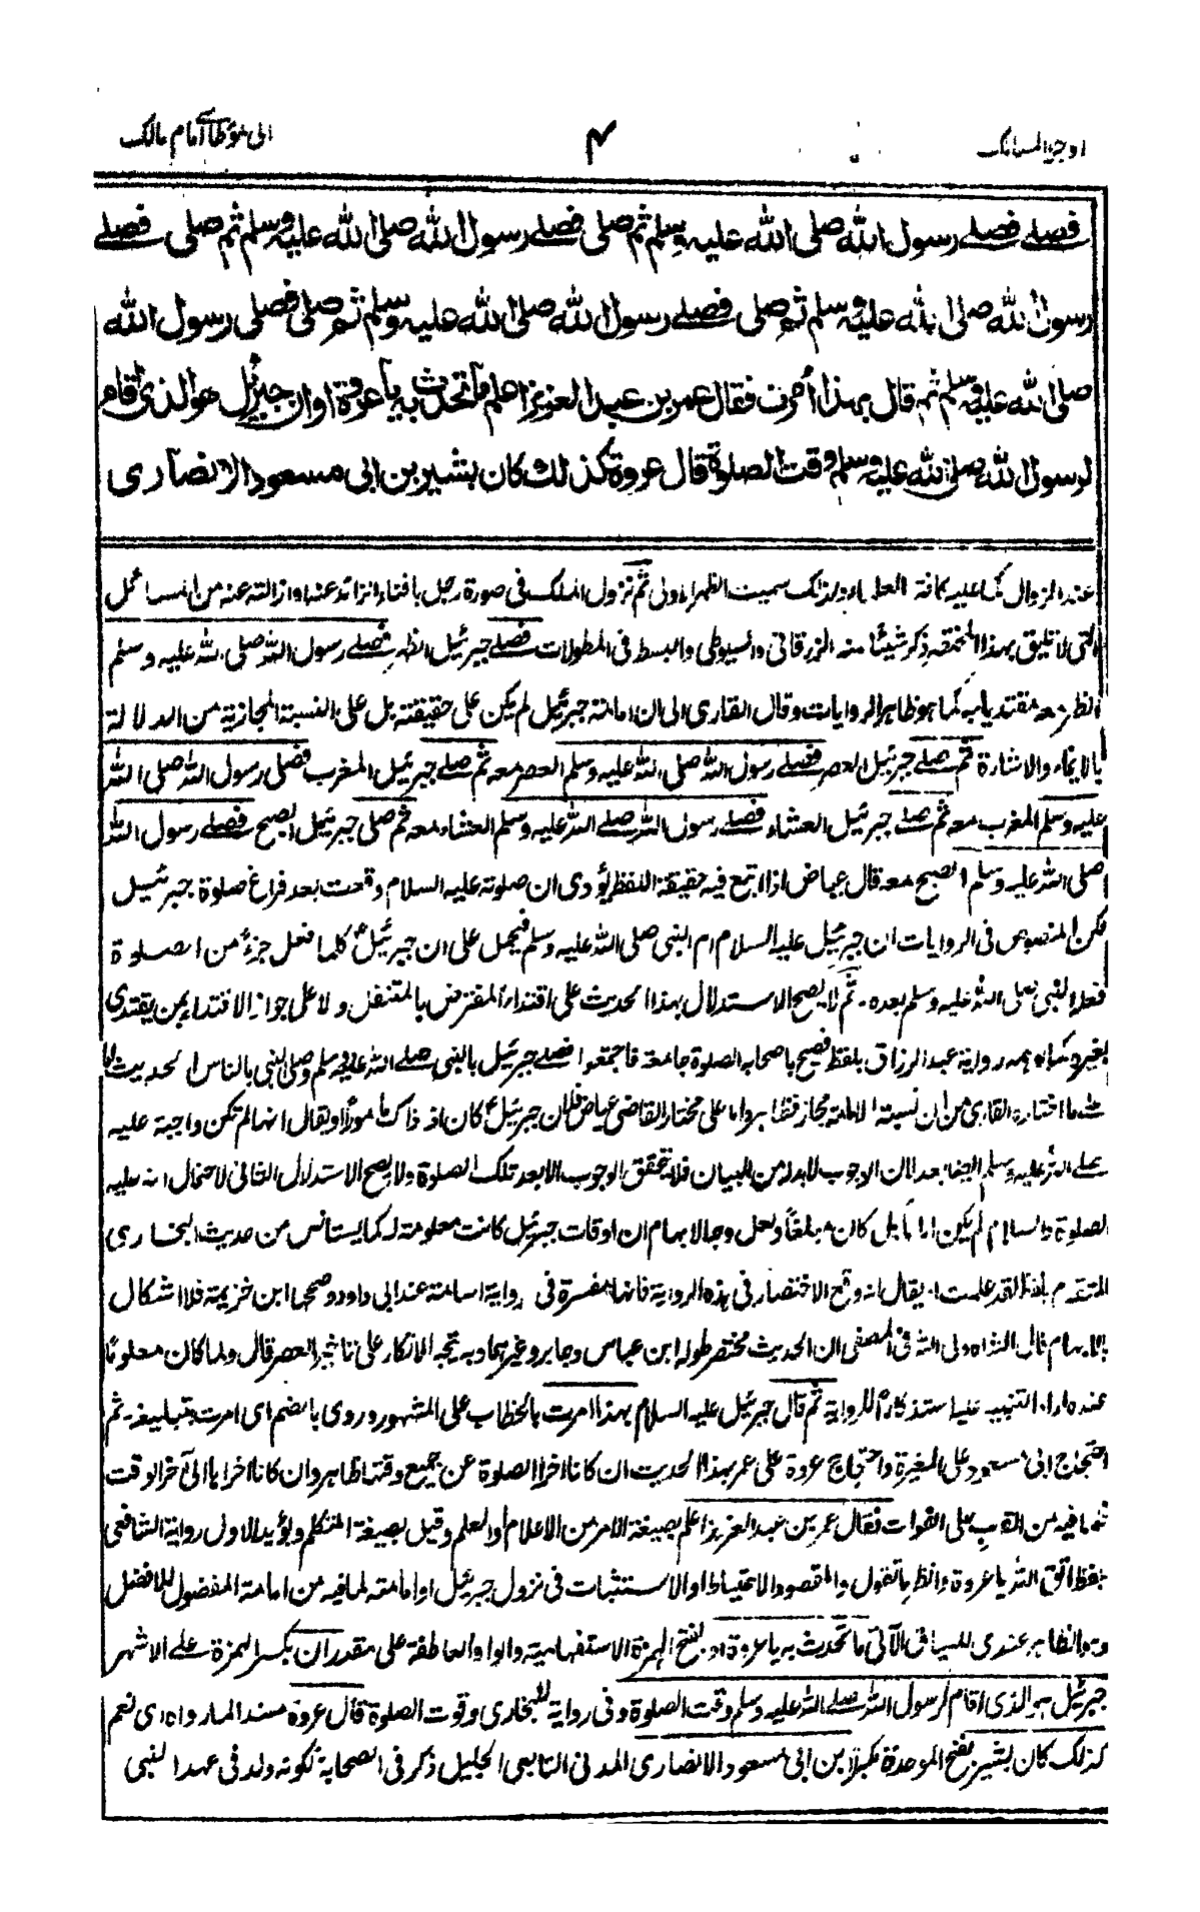 اوجز المسالك
۴
الى موطا امام مالك
فصلى فصلے رسول الله صلى الله عليه وسلم ثم صلى فصلے رسول الله صلى الله عليه وسلم ثم صلى فصلے
رسول الله صلى الله عليه وسلم ثم صلى فصلے رسول الله صلى الله عليه وسلم ثم صلى فصلى رسول الله
صلى الله عليه وسلم ثم قال بهذا أمرت فقال عمر بن عبد العزيز اعلم ما تحدث به يا عروة او ان جبرئيل هو الذى اقام
لرسول الله صلى الله عليه وسلم وقت الصلوة قال عروة كذلك كان بشير بن ابى مسعود الانصارى
عند الزوال كما عليه كافة العلماء ولذلك سميت الظهر الاولى ثم نزول الملك فى صورة رجل بافناء الزائد عنه او ازالته عنه من المسائل
التى لا تليق بهذا المختصر ذكر شيئا منه الزرقانى والسيوطى والبسط فى المطولات فصلے جبرئيل الظهر فصلے رسول الله صلى الله عليه وسلم
الظهر معه مقتديا به كما هو ظاهر الروايات وقال القارى الى ان امامة جبرئيل لم يكن على حقيقته بل على النسبة المجازية من الدلالة
بالايماء والاشارة ثم صلے جبرئيل العصر فصلے رسول الله صلى الله عليه وسلم العصر معه ثم صلے جبرئيل المغرب فصلى رسول الله صلى الله
عليه وسلم المغرب معه ثم صلے جبرئيل العشاء فصلے رسول الله صلے الله عليه وسلم العشاء معه ثم صلى جبرئيل الصبح فصلے رسول الله
صلى الله عليه وسلم الصبح معه قال عياض اذا اتبع فيه حقيقة اللفظ يؤدى ان صلوته عليه السلام وقعت بعد فراغ صلوة جبرئيل
لكن المنصوص فى الروايات ان جبرئيل عليه السلام ام النبى صلى الله عليه وسلم فيحمل على ان جبرئيل كلما فعل جزءً من الصلوة
فعله النبى صلى الله عليه وسلم بعده - ثم لا يصح الاستدلال بهذا الحديث على اقتداء المفترض بالمتنفل ولا على جواز الاقتداء بمن يقتدى
بغيره رواية عبد الرزاق بلفظ فصيح باصحابه الصلوة جامعة فاجتمعوا فصلے جبرئيل بالنبى صلے الله عليه وسلم وصلى النبى بالناس الحديث
ما اختاره القارى من ان نسبة الامامة مجاز فظاهر واما على مختار القاضى عياض فلان جبرئيل كان اذ ذاك مامورا او يقال انها لم تكن واجبة عليه
صلے الله عليه وسلم ايضا بعد لان الوجوب لا بد له من البيان فلا تحقق الوجوب الا بعد تلك الصلوة ولا يصح الاستدلال الثانى لاحتمال انه عليه
الصلوة والسلام لم يكن اماما بل كان مبلغا ولعل وجه الابهام ان اوقات جبرئيل كانت معلومة له كما يستانس من حديث البخارى
المتقدم بلفظ لقد علمت او يقال انه وقع الاختصار فى هذه الرواية فانها مفسرة فى رواية اسامة عند ابى داود وصححها ابن خزيمة فلا اشكال
بالابهام قال الشاه ولى الله فى المصفى ان الحديث مختصر طوله ابن عباس وجابر وغيرهما وبه يتجه الانكار على تاخير العصر قال ولما كان معلوما
عنده اراد التنبيه عليه استذكارا للرواية ثم قال جبرئيل عليه السلام بهذا امرت بالخطاب على المشهور وروى بالضم اى امرت بتبليغه ثم
احتجاج ابى مسعود على المغيرة واحتجاج عروة على عمر بهذا الحديث ان كانا اخرا الصلوة عن جميع وقتها ظاهر وان كانا اخراها الى آخر الوقت
لما فيه من القرب على الفوات فقال عمر بن عبد العزيز اعلم بصيغة الامر من الاعلام او العلم وقيل بصيغة المتكلم ويؤيد الاول رواية الشافعى
بلفظ اتق الله يا عروة وانظر ما تقول والمقصود الاحتياط او الاستثبات فى نزول جبرئيل او امامته لما فيه من امامة المفضول للافضل
وهو الظاهر عندى للسياق الآتى ما تحدث به يا عروة او بفتح الهمزة الاستفهامية والواو العاطفة على مقدر ان بكسر الهمزة على الاشهر
جبرئيل هو الذى اقام لرسول الله صلے الله عليه وسلم وقت الصلوة وفى رواية للبخارى وقوت الصلوة قال عروة مسندا لما رواه اى نعم
كذلك كان بشير بفتح الموحدة مكبرا بن ابى مسعود الانصارى المدنى التابعى الجليل ذكر فى الصحابة لكونه ولد فى عهد النبى